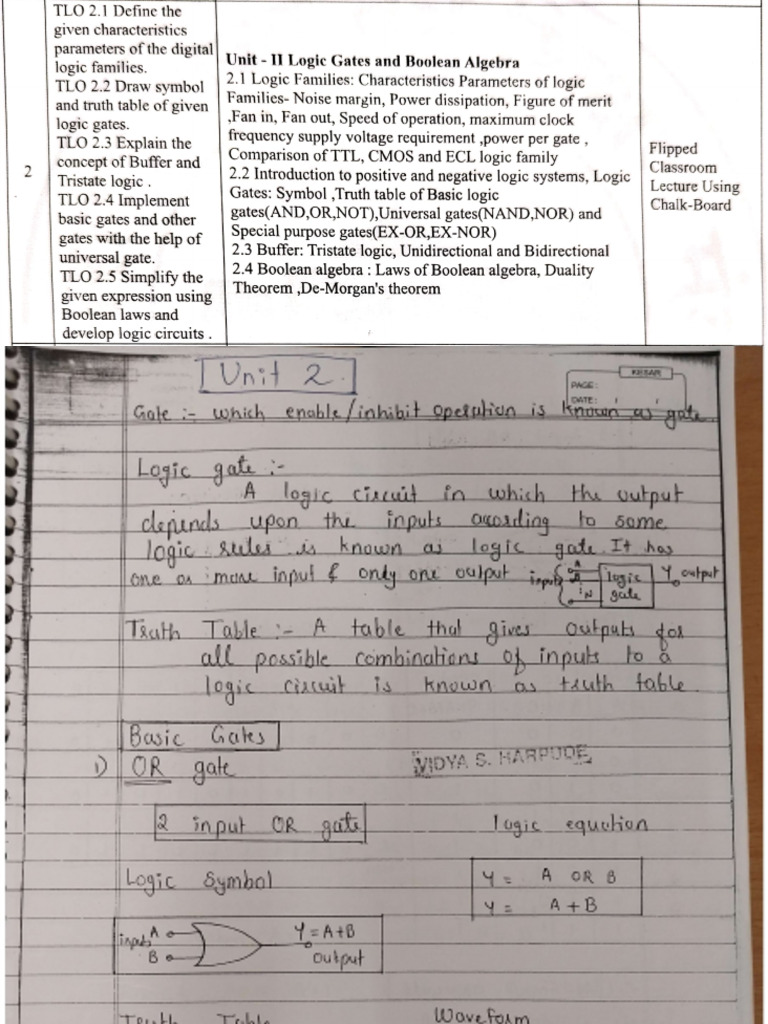 TLO 2.1 Define the
given characteristics
parameters of the digital
logic families.
TLO 2.2 Draw symbol
and truth table of given
logic gates.
TLO 2.3 Explain the
concept of Buffer and
Tristate logic .
TLO 2.4 Implement
basic gates and other
gates with the help of
universal gate.
TLO 2.5 Simplify the
given expression using
Boolean laws and
develop logic circuits .
2
Unit - II Logic Gates and Boolean Algebra
2.1 Logic Families: Characteristics Parameters of logic
Families- Noise margin, Power dissipation, Figure of merit
,Fan in, Fan out, Speed of operation, maximum clock
frequency supply voltage requirement ,power per gate ,
Comparison of TTL, CMOS and ECL logic family
2.2 Introduction to positive and negative logic systems, Logic
Gates: Symbol ,Truth table of Basic logic
gates(AND,OR,NOT),Universal gates(NAND,NOR) and
Special purpose gates(EX-OR,EX-NOR)
2.3 Buffer: Tristate logic, Unidirectional and Bidirectional
2.4 Boolean algebra : Laws of Boolean algebra, Duality
Theorem ,De-Morgan's theorem
Flipped
Classroom
Lecture Using
Chalk-Board
Unit 2
PAGE:
DATE:
Gate :- which enable/inhibit operation is known as gate
Logic gate :-
A logic circuit in which the output
depends upon the inputs according to some
logic rules is known as logic gate. It has
one or more input & only one output
inputs A logic gate Y output
N
Truth Table :- A table that gives outputs for
all possible combinations of inputs to a
logic circuit is known as truth table
Basic Gates
1) OR gate
VIDYA S. HARPUDE
2 input OR gate
logic equation
Logic Symbol
Y = A OR B
Y = A + B
inputs A
B
Y = A+B
output
Truth Table
Waveform